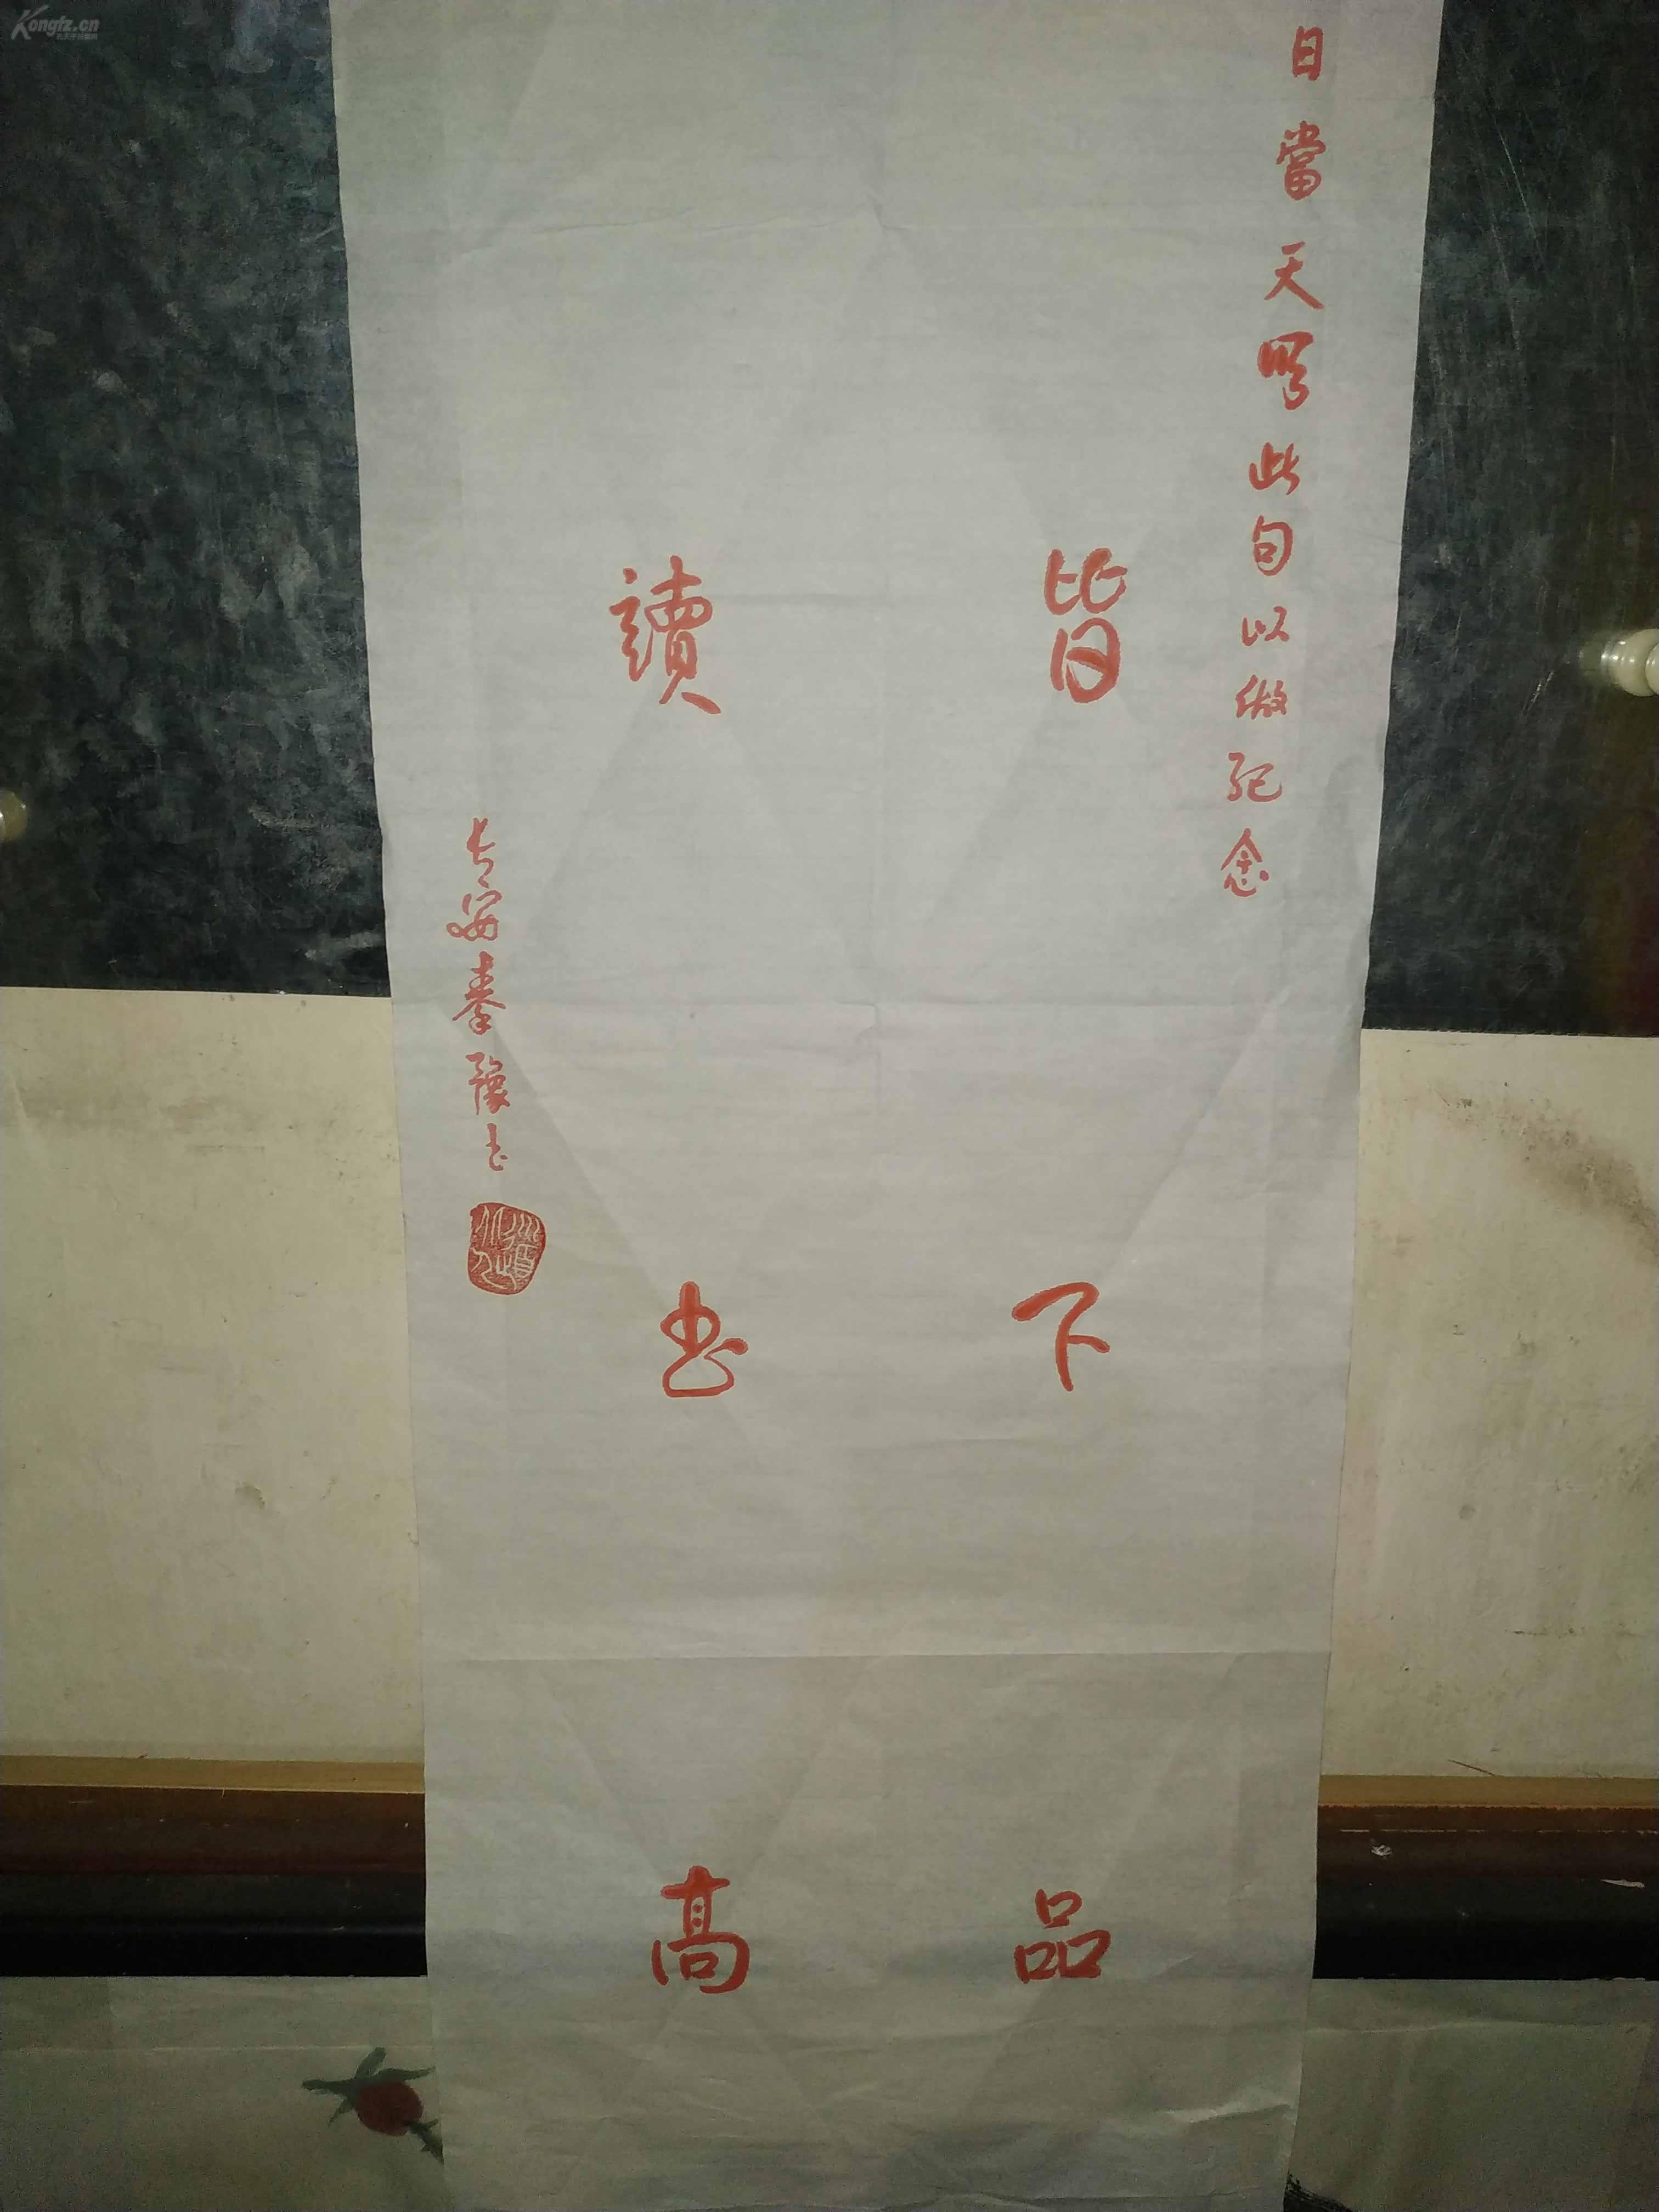 Kongfz.cn
日當天此句以做紀念
皆下品
讀書高
長安秦豫書